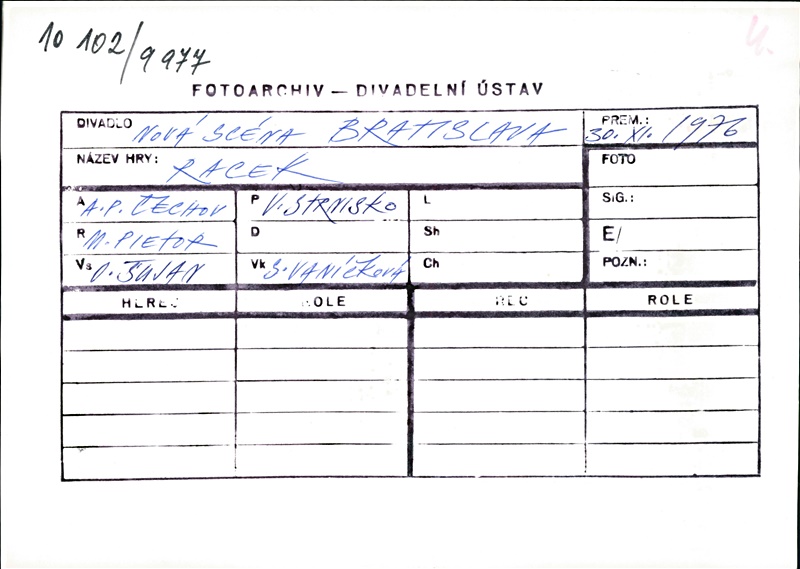 10 102/9977
4.
FOTOARCHIV — DIVADELNÍ ÚSTAV
DIVADLO NOVÁ SCÉNA BRATISLAVA
PREM.: 30. XI. 1976
NÁZEV HRY: RACEK
FOTO
A A.P. ČECHOV P V. STRNISKO L
SIG.:
R M. PIETOR D Sh
E/
Vs O. ŠUJAN Vk S. VANÍČKOVÁ Ch
POZN.:
HEREC ROLE HEREC ROLE